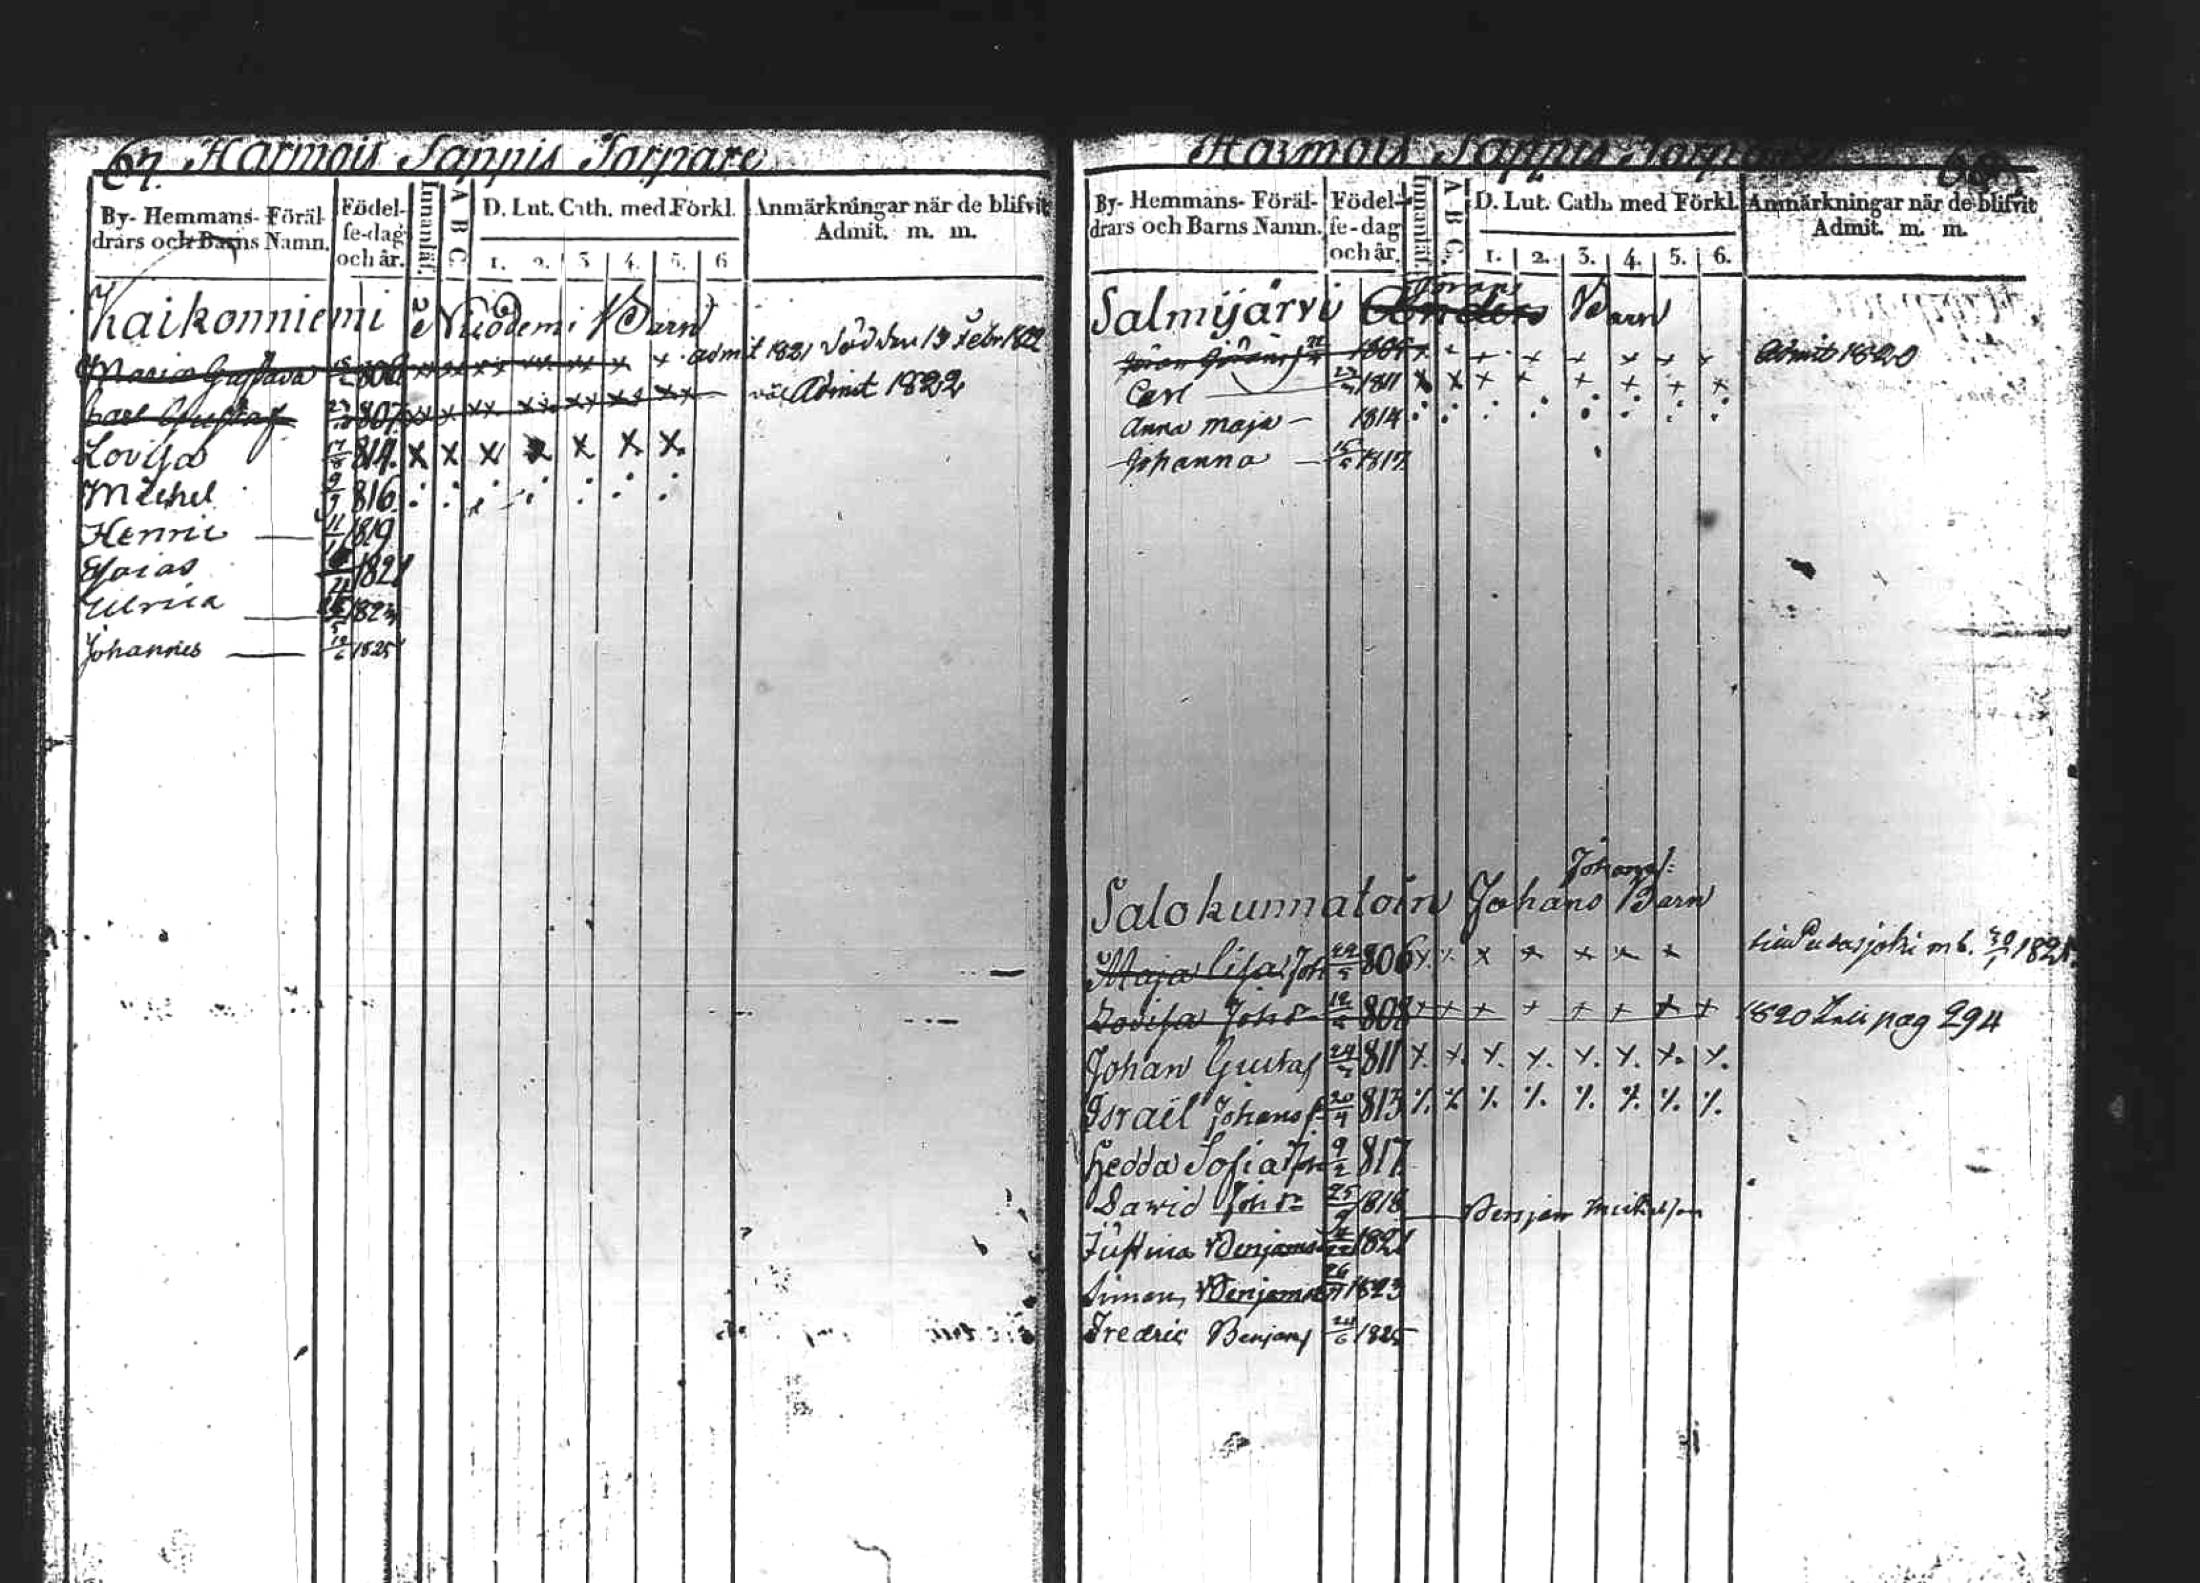 67. Harmois Sappis Torpare
By- Hemmans- Föräl-
drars och Barns Namn.
Födel-
se-dag
och år.
Innanläs.
A B C.
D. Lut. Cath. med Förkl.
1. 2. 3 4. 5. 6
Anmärkningar när de blifvit
Admit. m. m.
Khaikonniemi Nicodemi Barn
Maria Gustava 806 x x x x x x x admit 1821 död den 13 Febr 1822
Carl Gustaf 807 xx xx xx xx xx xx Admit 1822
Lovisa 17/8 814. x x x x x x x
Michel 9/9 816.
Henric 11/11 1819
Esaias 1821
Ulrica 1823
Johannes 12/6 1825
Harmois Sappis Torpare 68
By- Hemmans- Föräl-
drars och Barns Namn.
Födel-
se-dag
och år.
Innanläs.
A B C.
D. Lut. Cath. med Förkl.
1. 2. 3. 4. 5. 6.
Anmärkningar när de blifvit
Admit. m. m.
Görans
Salmijärvi Anders Barn
Göran Göranss 1805 x x x x x x x Admit 1820
Carl 1811 x x x x x x x x
Anna Maja 1814
Johanna 15/5 1817
Johanss:
Salokunnatoin Johans Barn
Maja Lisa Joh 22/5 806 x x x x x x x 1821.
Lovisa Johdr 12/5 808 x x x x x x x x 1820 pag 294
Johan Gustaf 24/7 811 x. x. x. x. x. x. x. x.
Israel Johans 20/4 813
Hedda Sofia Joh 9/2 817
Dawid Joh 25/9 1818 Benjam Michelson
Justina Benjams 1821
Simon Benjams 26/11 1823
Fredric Benjams 24/6 1825